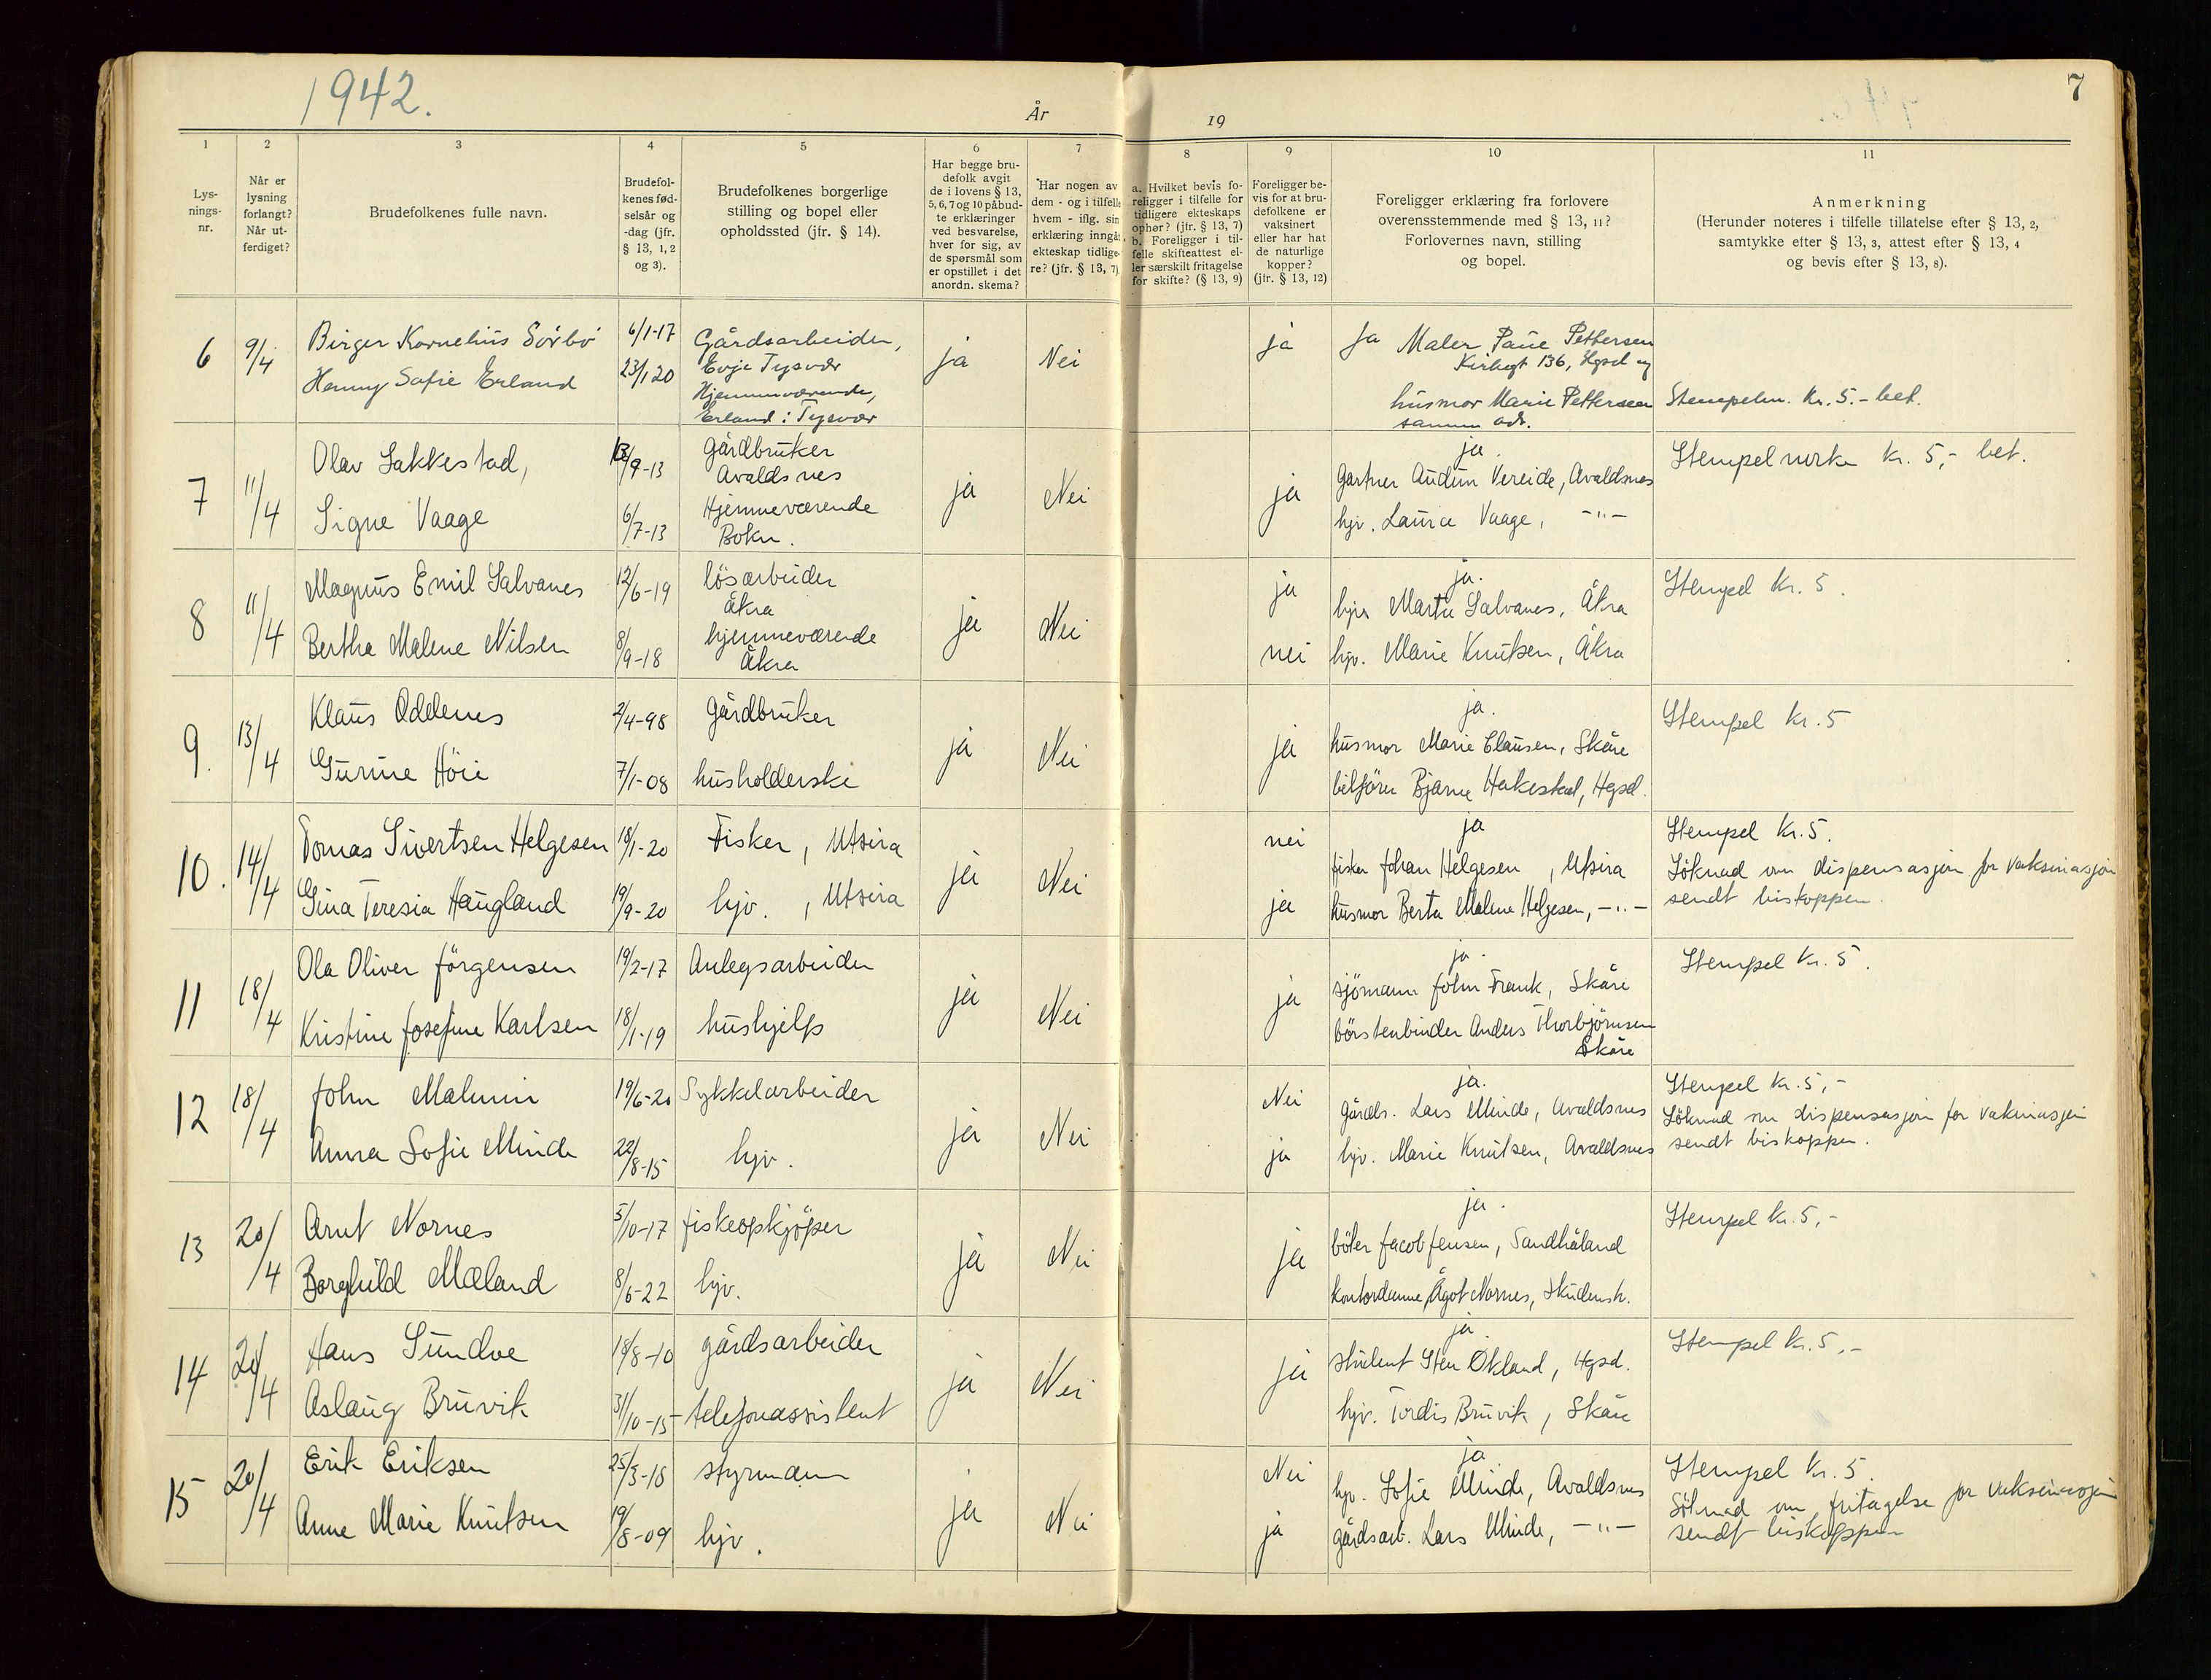 1942.
År
19
7
1
Lys-
nings-
nr.
2
Når er
lysning
forlangt?
Når ut-
ferdiget?
3
Brudefolkenes fulle navn.
4
Brudefol-
kenes fød-
selsår og
-dag (jfr.
§ 13, 1, 2
og 3).
5
Brudefolkenes borgerlige
stilling og bopel eller
opholdssted (jfr. § 14).
6
Har begge bru-
defolk avgit
de i lovens § 13,
5, 6, 7 og 10 påbud-
te erklæringer
ved besvarelse,
hver for sig, av
de spørsmål som
er opstillet i det
anordn. skema?
7
Har nogen av
dem - og i tilfelle
hvem - iflg. sin
erklæring inngåt
ekteskap tidlige-
re? (jfr. § 13, 7)
8
a. Hvilket bevis fo-
religger i tilfelle for
tidligere ekteskaps
ophør? (jfr. § 13, 7)
b. Foreligger i til-
felle skifteattest el-
ler særskilt fritagelse
for skifte? (§ 13, 9)
9
Foreligger be-
vis for at bru-
defolkene er
vaksinert
eller har hat
de naturlige
kopper?
(jfr. § 13, 12)
10
Foreligger erklæring fra forlovere
overensstemmende med § 13, 11?
Forlovernes navn, stilling
og bopel.
11
Anmerkning
(Herunder noteres i tilfelle tillatelse efter § 13, 2,
samtykke efter § 13, 3, attest efter § 13, 4
og bevis efter § 13, 8).
6
9/4
Birger Kornelius Sörbö
Henny Sofie Erland
6/1-17
23/1 20
Gårdsarbeider,
Evje Tysvær
Hjemmeværende,
Erland i Tysvær
ja
Nei
ja
Ja Maler Paue Pettersen
Kirkegt 136, Hgsd og
husmor Marie Pettersen
samme adr.
Stempelm. Kr. 5.- bet.
7
11/4
Olav Sakkestad,
Signe Vaage
13/9-13
6/7-13
gårdbruker
Avaldsnes
Hjemmeværende
Bokn.
ja
Nei
ja
ja.
Gartner Audun Vereide, Avaldsnes
hjv. Laura Vaage, -"-
Stempelmerke Kr. 5,- bet.
8
11/4
Magnus Emil Salvanes
Bertha Malene Nilsen
12/6-19
8/9-18
lösarbeider
Åkra
hjemmeværende
Åkra
ja
Nei
ja
nei
ja.
hjv. Marta Salvanes, Åkra
hjv. Marie Knutsen, Åkra
Stempel Kr. 5.
9.
13/4
Klaus Oddenes
Gurine Höie
2/4-98
7/1-08
gårdbruker
husholderske
ja
Nei
ja
ja.
husmor Marie Clausen, Skåre
bilförer Bjarne Hakestad, Hgsd.
Stempel Kr. 5
10.
14/4
Tomas Sivertsen Helgesen
Gina Teresia Haugland
18/1-20
19/9-20
Fisker, Utsira
hjv., Utsira
ja
Nei
nei
ja
ja
fisker Johan Helgesen, Utsira
husmor Berta Malene Helgesen, -"-
Stempel Kr. 5.
Söknad om dispensasjon for vaksinasjon
sendt biskoppen.
11
18/4
Ola Oliver Jörgensen
Kristine Josefine Karlsen
19/2-17
18/1-19
Anlegsarbeider
hushjelp
ja
Nei
ja
ja.
sjömann John Frank, Skåre
börstenbinder Anders Thorbjörnsen
Skåre
Stempel Kr. 5.
12
18/4
John Malmin
Anna Sofie Minde
19/6-20
22/8-15
Sykkelarbeider
hjv.
ja
Nei
Nei
ja
ja.
gårdbr. Lars Minde, Avaldsnes
hjv. Marie Knutsen, Avaldsnes
Stempel Kr. 5,-
Söknad om dispensasjon for vaksinasjon
sendt biskoppen.
13
20/4
Arnt Nornes
Borghild Mæland
5/10-17
8/6-22
fiskeopkjöper
hjv.
ja
Nei
ja
ja.
böter Jacob Jensen, Sandhåland
kontordame Ågot Nornes, Skudensh.
Stempel Kr. 5,-
14
20/4
Hans Sundve
Aslaug Bruvik
18/8-10
31/10-15
gårdsarbeider
telefonassistent
ja
Nei
ja
ja.
student Sten Ökland, Hgsd.
hjv. Tordis Bruvik, Skåre
Stempel Kr. 5,-
15
20/4
Erik Eriksen
Anne Marie Knutsen
25/3-18
19/8-09
styrmann
hjv.
ja
Nei
Nei
ja
ja
hjv. Sofie Minde, Avaldsnes
gårdsarb. Lars Minde, -"-
Stempel Kr. 5.
Söknad om fritagelse for vaksinasjon
sendt biskoppen